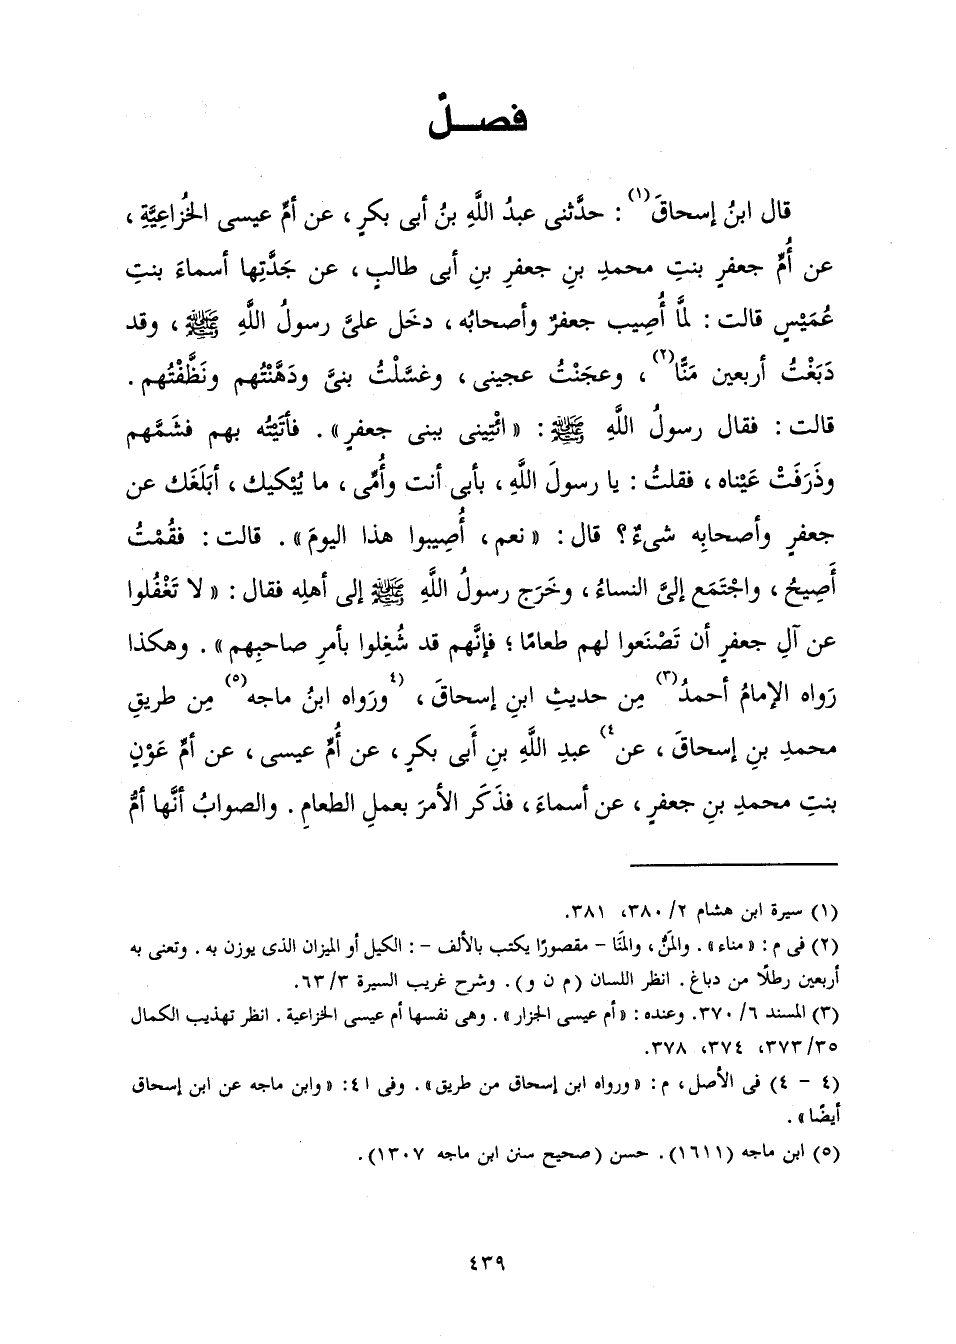 فصـــلٌ
قال ابنُ إسحاقَ(١) : حدَّثنى عبدُ اللَّهِ بنُ أبى بكرٍ ، عن أمِّ عيسى الخُزاعِيَّةِ ،
عن أُمِّ جعفرٍ بنتِ محمدِ بنِ جعفرِ بنِ أبى طالبٍ ، عن جَدَّتِها أسماءَ بنتِ
عُمَيْسٍ قالت : لمَّا أُصِيب جعفرٌ وأصحابُه ، دخَل علىَّ رسولُ اللَّهِ ﷺ ، وقد
دَبَغْتُ أربعين مَنًّا(٢) ، وعجَنْتُ عجينى ، وغسَّلْتُ بنىَّ ودَهَّنْتُهم ونَظَّفْتُهم .
قالت : فقال رسولُ اللَّهِ ﷺ : « ائْتِينى ببنى جعفرٍ » . فأتَيْتُه بهم فشَمَّهم
وذَرَفَتْ عَيْناه ، فقلتُ : يا رسولَ اللَّهِ ، بأبى أنت وأُمِّى ، ما يُبْكيك ، أبَلَغَك عن
جعفرٍ وأصحابِه شىءٌ ؟ قال : « نعم ، أُصِيبوا هذا اليومَ » . قالت : فقُمْتُ
أَصِيحُ ، واجْتَمَع إلىَّ النساءُ ، وخَرَج رسولُ اللَّهِ ﷺ إلى أهلِه فقال : « لا تَغْفُلوا
عن آلِ جعفرٍ أن تَصْنَعوا لهم طعامًا ؛ فإنَّهم قد شُغِلوا بأمرِ صاحبِهم » . وهكذا
رَواه الإمامُ أحمدُ(٣) مِن حديثِ ابنِ إسحاقَ ، (٤ورَواه ابنُ ماجه(٥) مِن طريقِ
محمدِ بنِ إسحاقَ ، عن٤) عبدِ اللَّهِ بنِ أبى بكرٍ ، عن أُمِّ عيسى ، عن أمِّ عَوْنٍ
بنتِ محمدِ بنِ جعفرٍ ، عن أسماءَ ، فذَكَر الأمرَ بعملِ الطعامِ . والصوابُ أنَّها أمُّ
(١) سيرة ابن هشام ٢/ ٣٨٠، ٣٨١.
(٢) فى م : « مناء » . والمَنُّ ، والمَنَا - مقصورًا يكتب بالألف - : الكيل أو الميزان الذى يوزن به . وتعنى به
أربعين رطلًا من دباغ . انظر اللسان (م ن و) . وشرح غريب السيرة ٣/ ٦٣.
(٣) المسند ٦/ ٣٧٠. وعنده : « أم عيسى الجزار » . وهى نفسها أم عيسى الخزاعية . انظر تهذيب الكمال
٣٥/ ٣٧٣، ٣٧٤، ٣٧٨.
(٤ - ٤) فى الأصل ، م : « ورواه ابن إسحاق من طريق » . وفى ا ٤: « وابن ماجه عن ابن إسحاق
أيضًا » .
(٥) ابن ماجه (١٦١١) . حسن (صحيح سنن ابن ماجه ١٣٠٧) .
٤٣٩